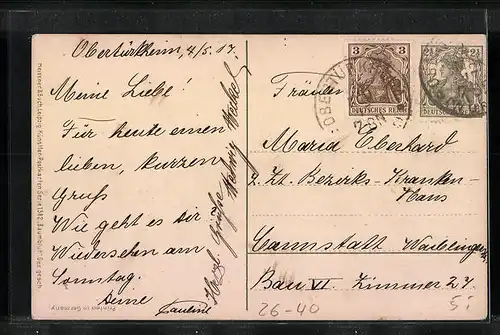 Obertürkheim, 4/5. 17.
Meine Liebe!
Für heute einen
lieben, kurzen
Gruß
Wie geht es dir
Wiedersehen am
Sonntag.
Deine
Pauline
Herzl. Grüße
Hedwig
Fräulein
Maria Eberhard
z. Zt. Bezirks-Kranken-
Haus
Cannstatt Waiblinger
Bau VI Zimmer 27
3
DEUTSCHES REICH
2½ 2½
Printed in Germany
26-40
5: